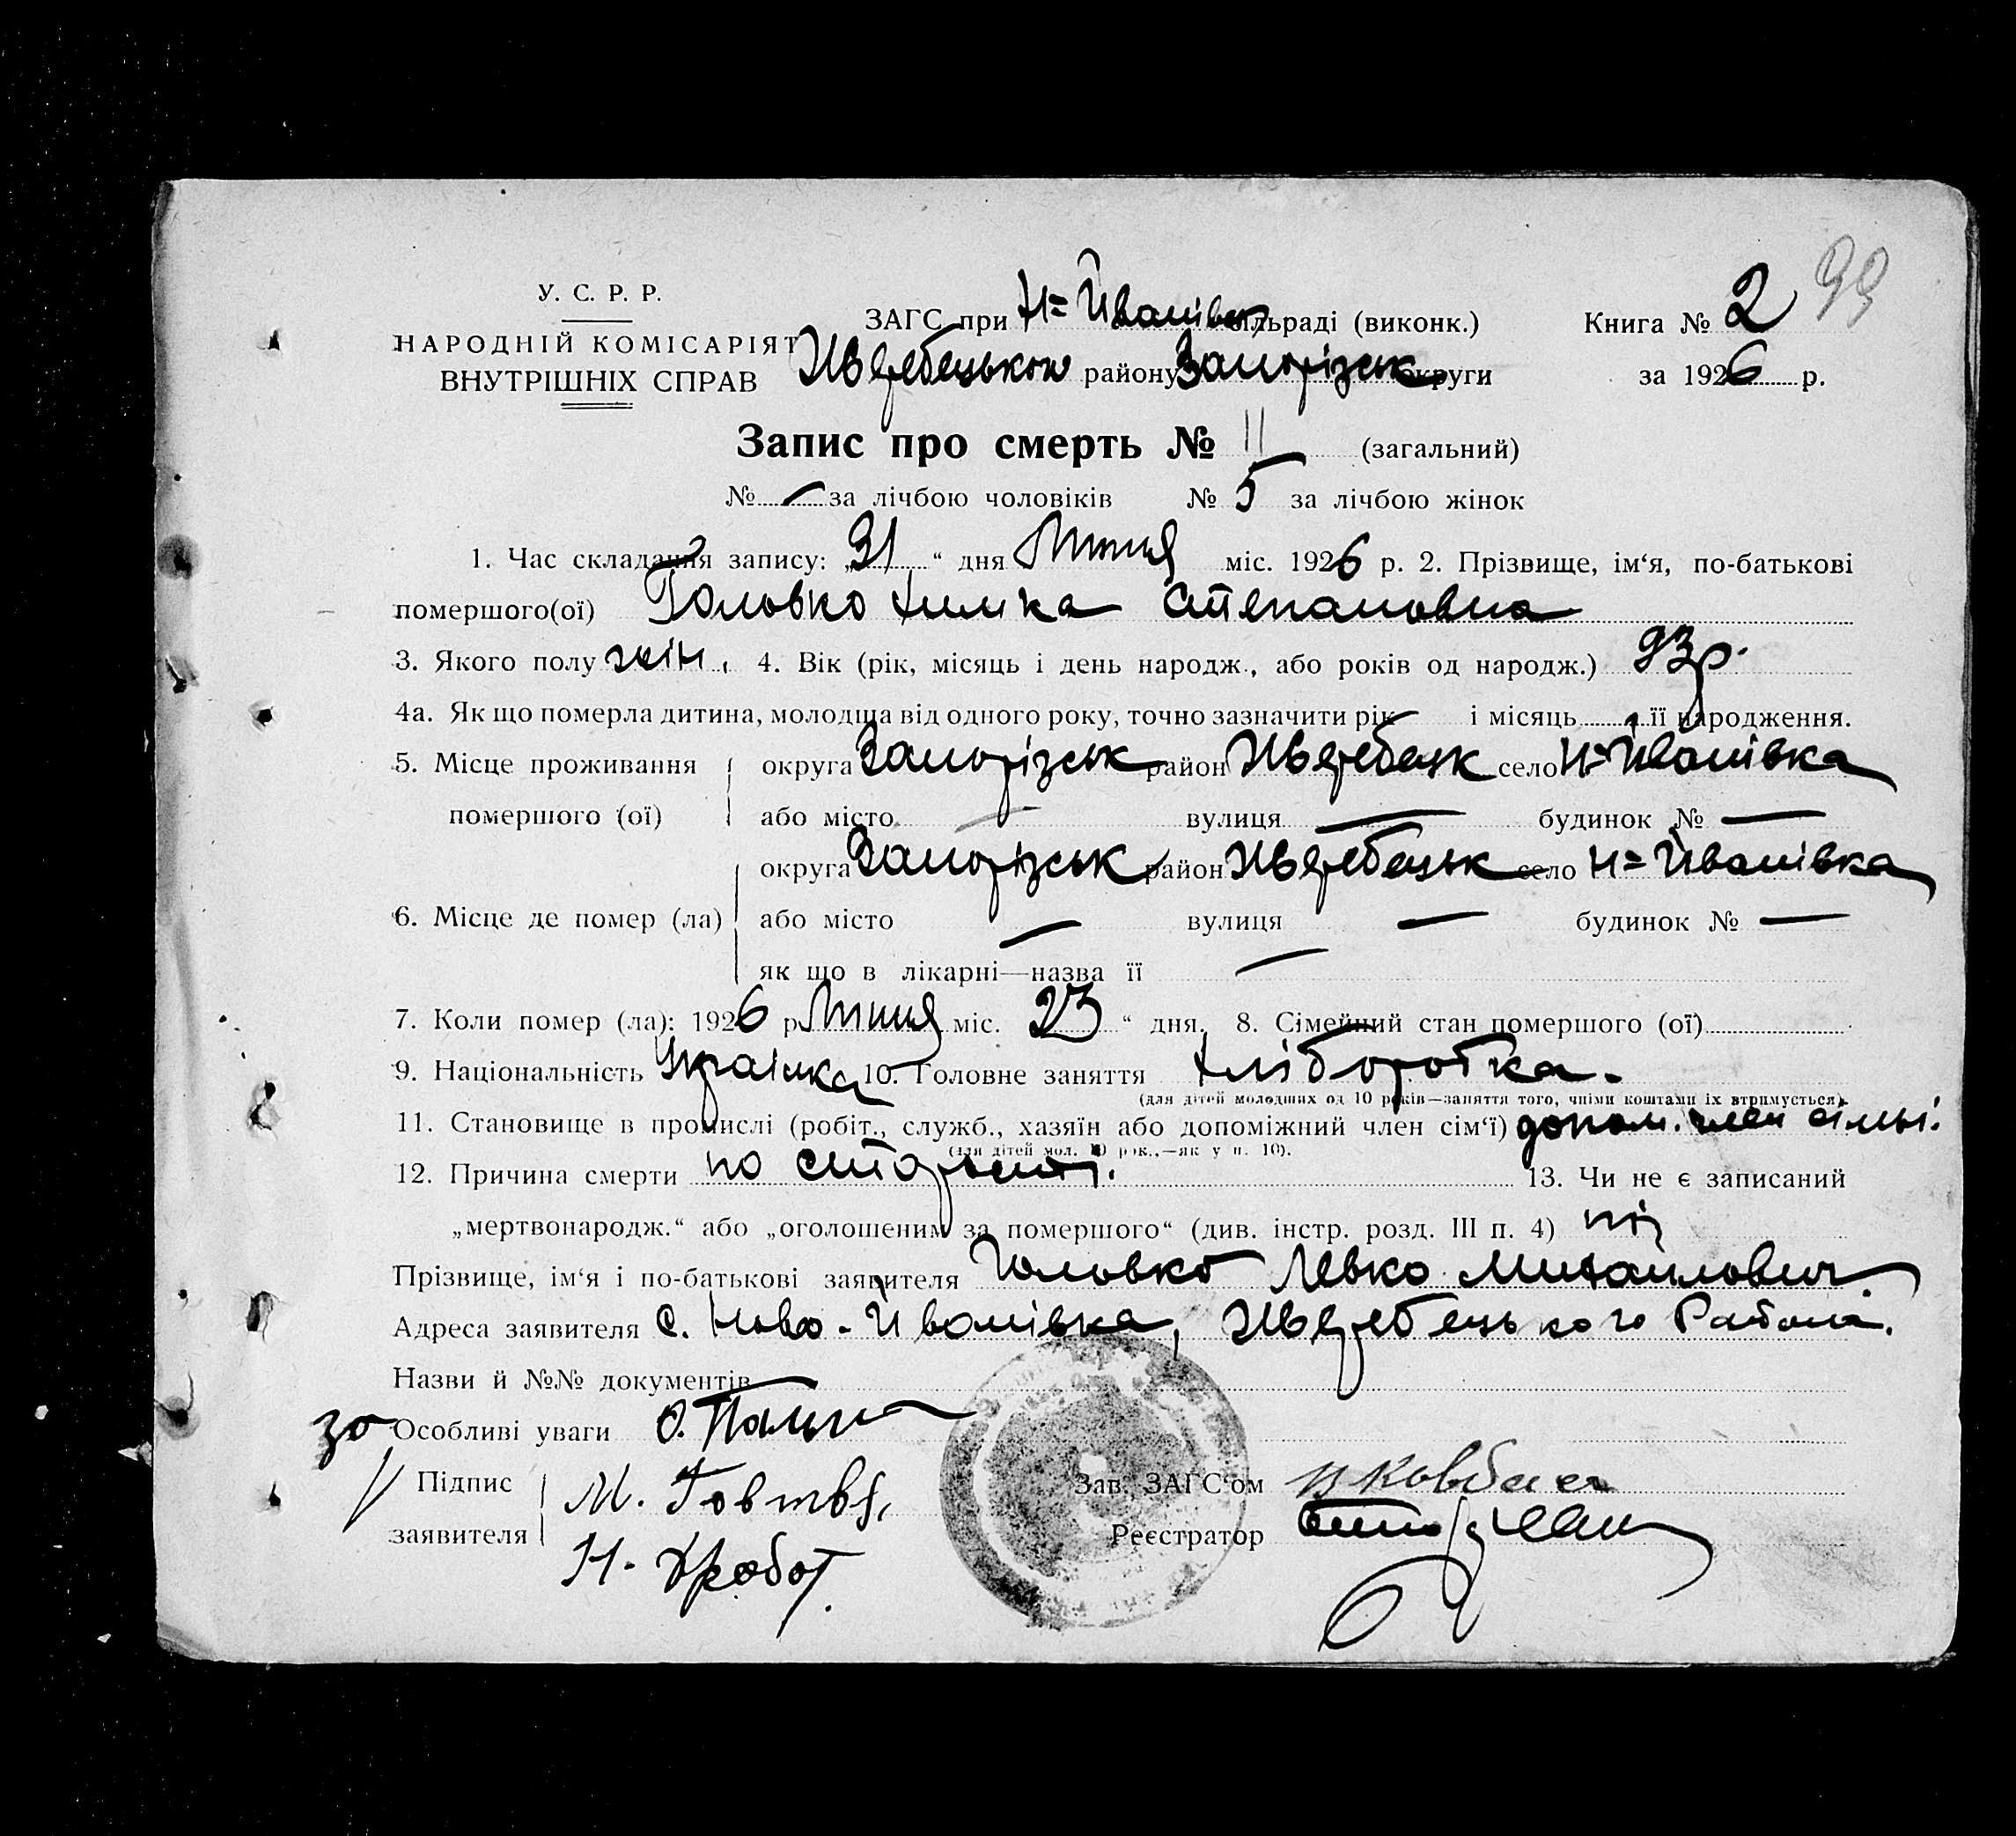 У. С. Р. Р.
НАРОДНІЙ КОМІСАРІЯТ
ВНУТРІШНІХ СПРАВ
ЗАГС при Н=Йванівск сільраді (виконк.)
Жеребецького району Запорізськ округи
Книга № 2 99
за 1926 р.
Запис про смерть № 11 (загальний)
№ — за лічбою чоловіків № 5 за лічбою жінок
1. Час складання запису: „31“ дня Липня міс. 1926 р. 2. Прізвище, ім‘я, по-батькові
помершого(ої) Головко Химка Степановна
3. Якого полу жін. 4. Вік (рік, місяць і день народж., або років од народж.) 93 р.
4а. Як що померла дитина, молодша від одного року, точно зазначити рік — і місяць її народження.
5. Місце проживання помершого (ої) округа Запорізськ район Жеребецк село Н=Йванівка
або місто — вулиця — будинок № —
6. Місце де помер (ла) округа Запорізськ район Жеребецьк село Н=Йванівка
або місто — вулиця — будинок № —
як що в лікарні—назва її —
7. Коли помер (ла): 1926 р. Липня міс. 23 “ дня. 8. Сімейний стан помершого (ої)
9. Національність Українка 10. Головне заняття Хліборобка.
(для дітей молодших од 10 років—заняття того, чиїми коштами їх втримується).
11. Становище в промислі (робіт., служб., хазяїн або допоміжний член сім‘ї) допом. член сімьі.
(для дітей мол. 10 рок.,—як у п. 10).
12. Причина смерти по старости. 13. Чи не є записаний
„мертвонародж.“ або „оголошеним за помершого“ (див. інстр. розд. III п. 4) ні
Прізвище, ім‘я і по-батькові заявителя Головко Левко Михайлович
Адреса заявителя с. Ново-Йванівка, Жеребецького Района.
Назви й №№ документів —
Особливі уваги
Підпис заявителя М. Говтвя,
Н. Дробот.
Зав. ЗАГС‘ом
Реєстратор